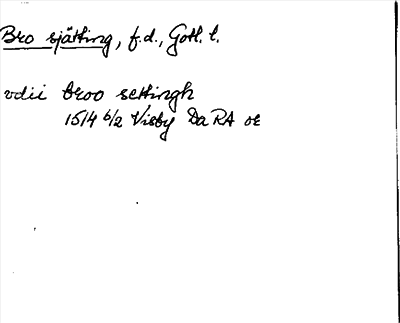 Bro sjätting, f.d., Gotl. l.
vdii broo settingh
1514 6/2 Visby Da RA oE